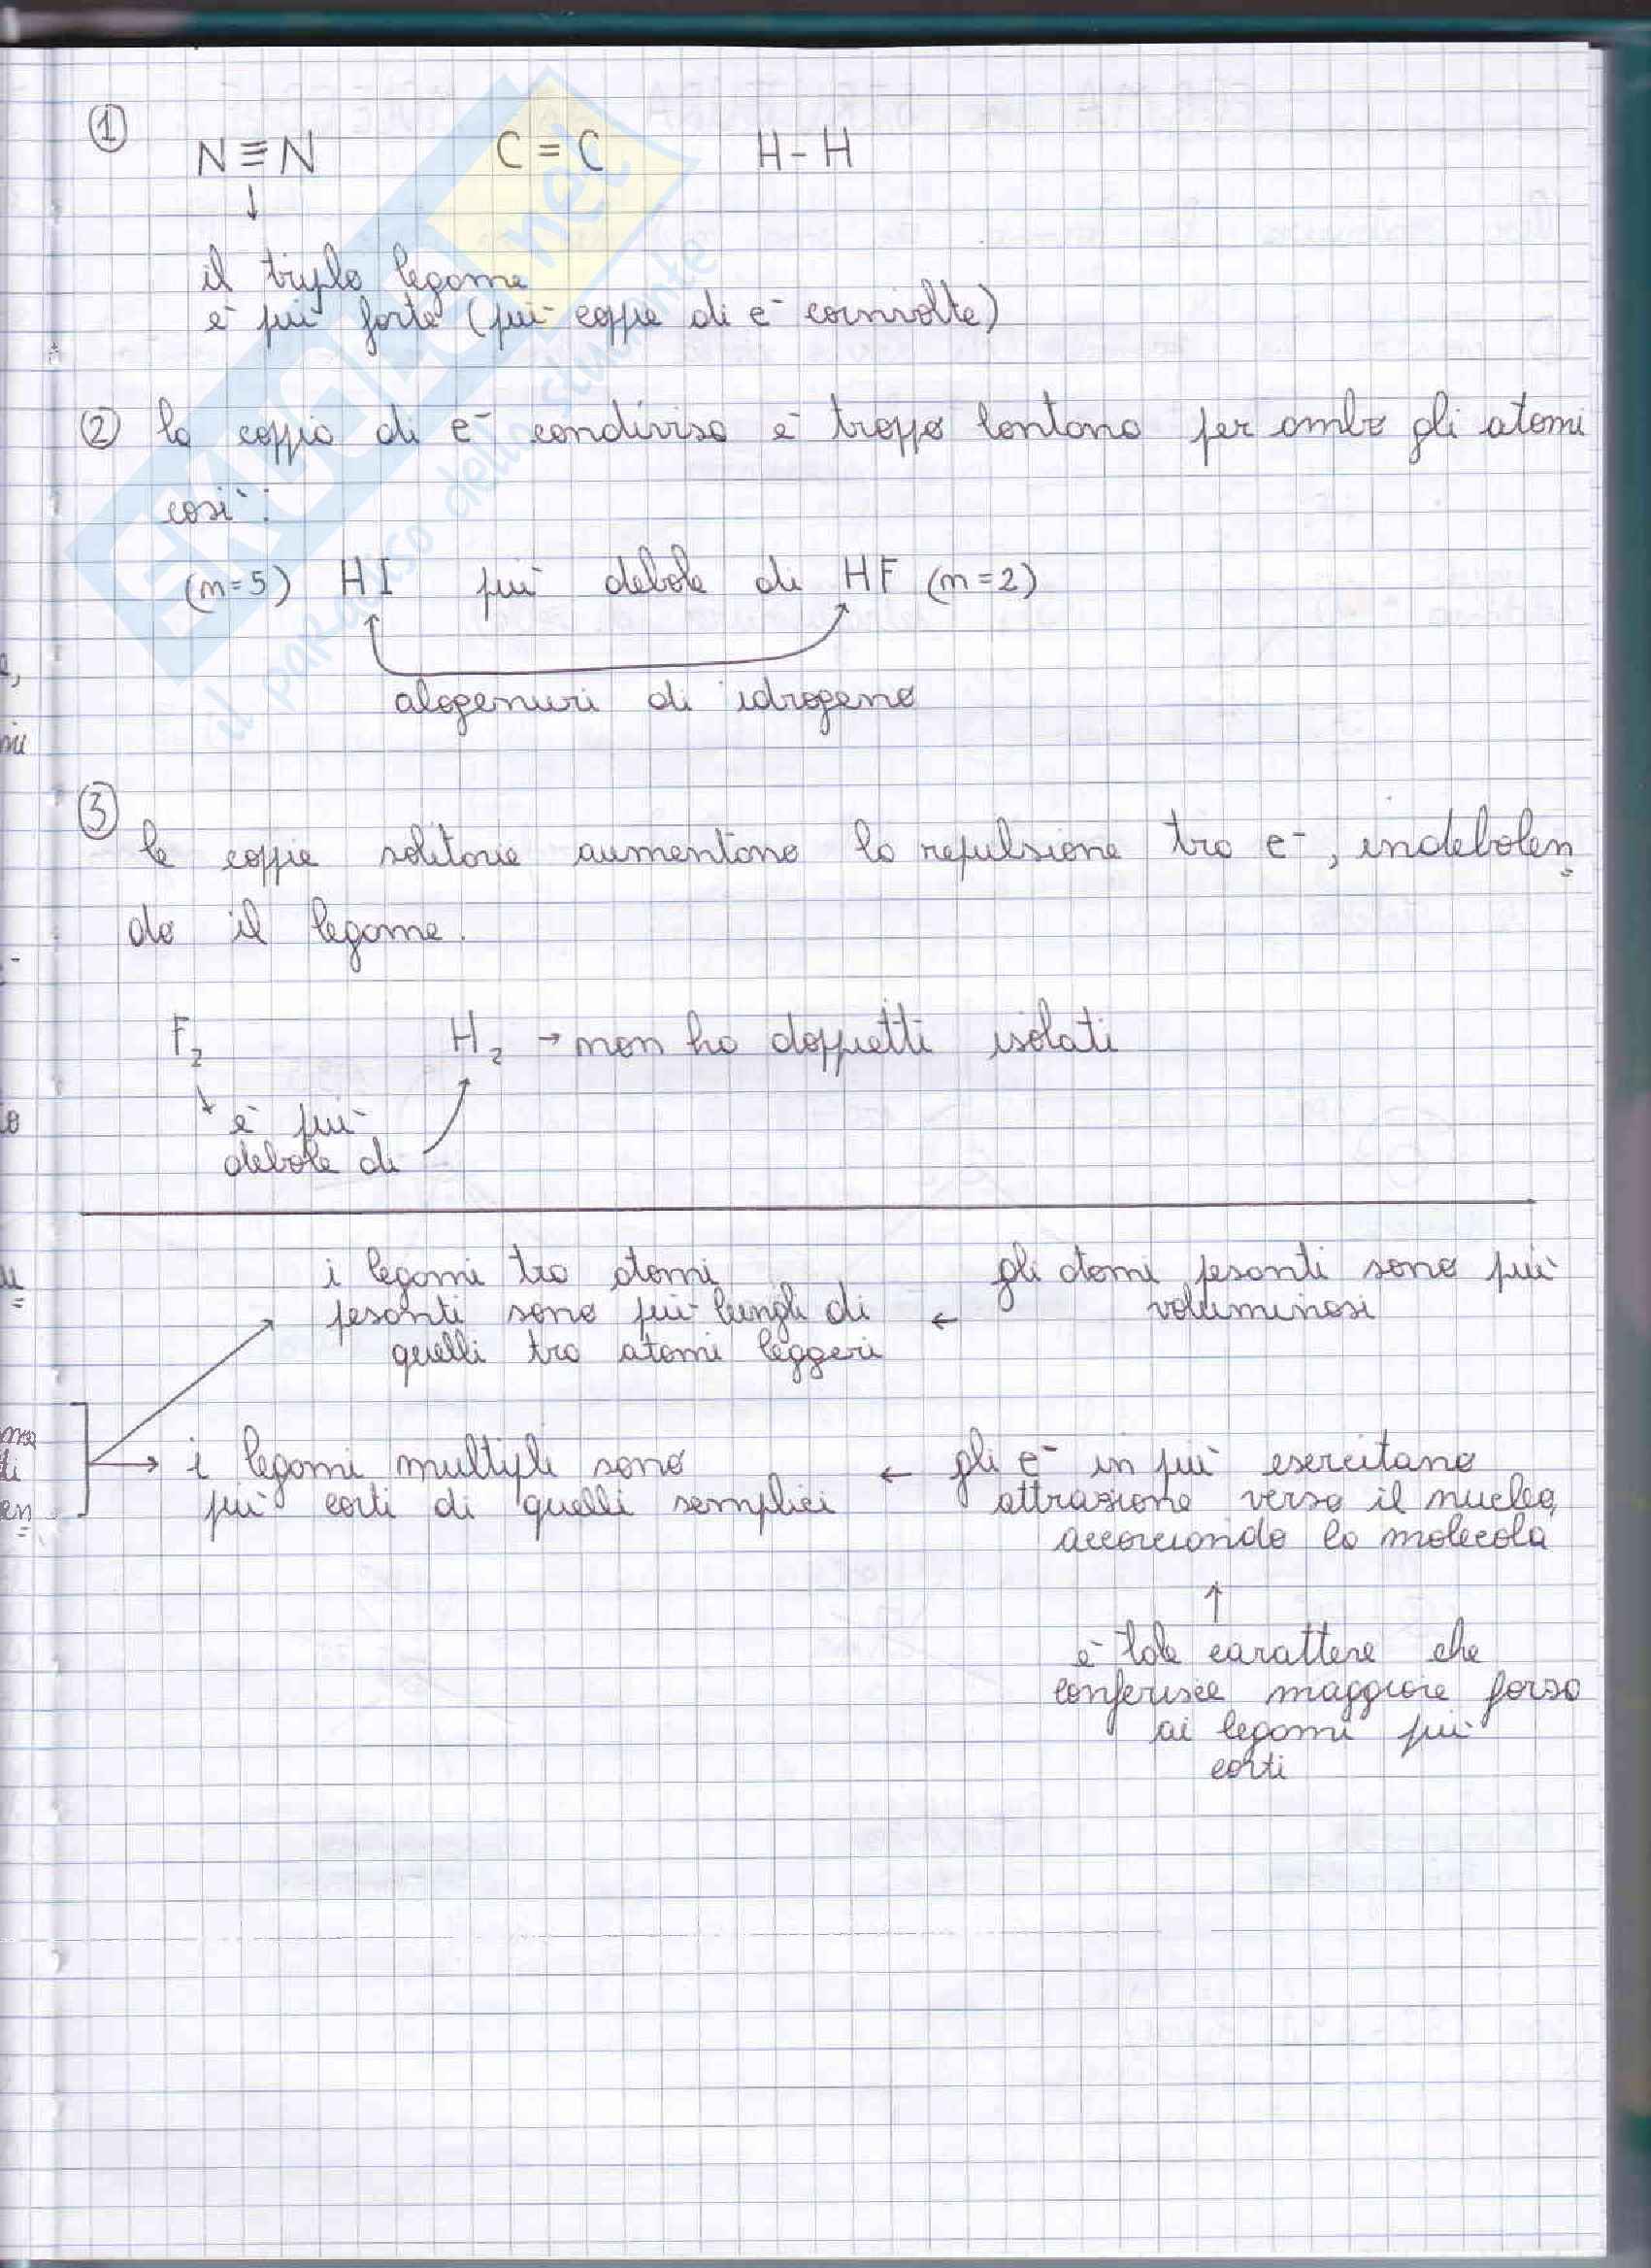 ①
N≡N C=C H-H
↓
il triplo legame
è più forte (più coppie di e⁻ coinvolte)
② la coppia di e⁻ condivisa è troppo lontana per ambo gli atomi
così:
(n=5) HI più debole di HF (n=2)
alogenuri di idrogeno
③
le coppie solitarie aumentano la repulsione tra e⁻, indebolen=
do il legame.
F₂ H₂ → non ho doppietti isolati
è più
debole di
i legami tra atomi
pesanti sono più lunghi di
quelli tra atomi leggeri
← gli atomi pesanti sono più
voluminosi
→ i legami multipli sono
più corti di quelli semplici
← gli e⁻ in più esercitano
attrazione verso il nucleo,
accorciando la molecola
↑
è tale carattere che
conferisce maggiore forza
ai legami più
corti
SKUOLA.net
il paradiso dello studente